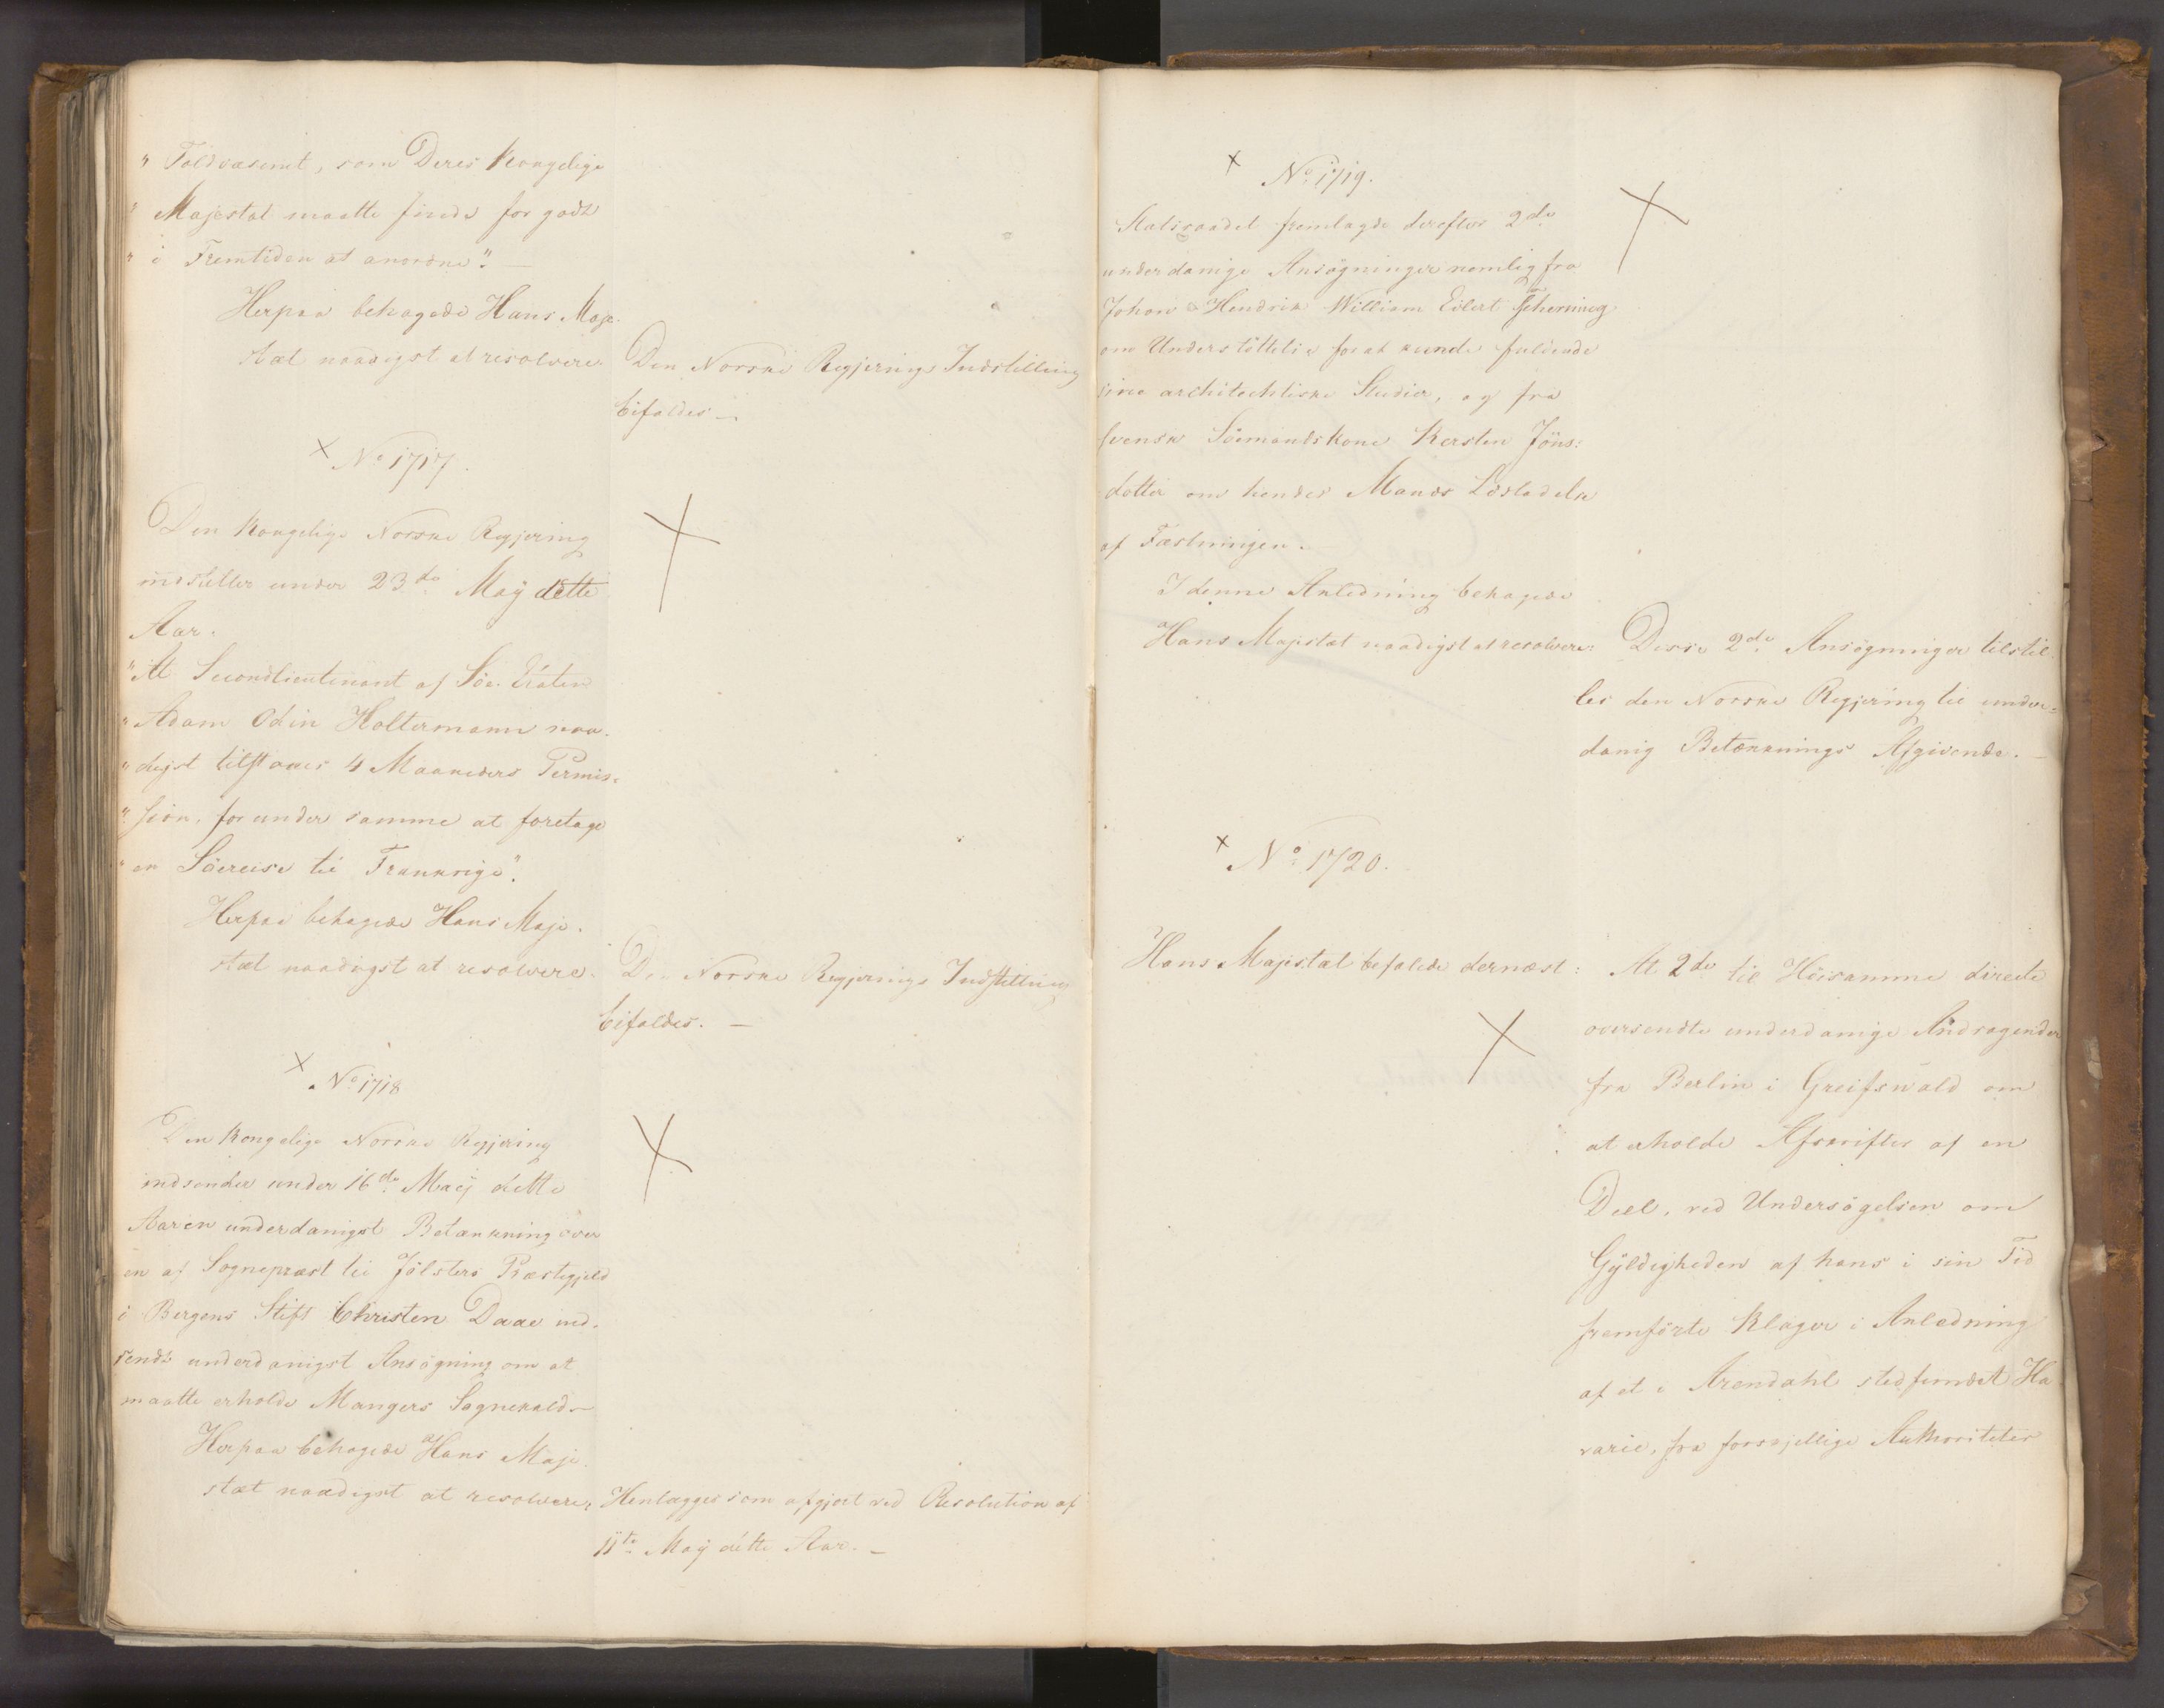 " Toldvæsenet, som Deres Kongelige
" Majestæt maatte finde for godt
" i Fremtiden at anordne". —
Herpaa behagede Hans Maje-
stæt naadigst at resolvere:
Den Norske Regjerings Indstilling
bifaldes —.
× No 1717.
Den Kongelige Norske Regjering
indstiller under 23de May dette
Aar.
" At Secondlieutenant af Söe-Etaten
" Adam Odin Holtermann naa-
" digst tilstaaes 4 Maaneders Permis-
" sion, for under samme at foretage
" en Söereise til Frankrige".
Herpaa behagede Hans Maje-
stæt naadigst at resolvere.
Den Norske Regjerings Indstilling
bifaldes. —
× No 1718
Den Kongelige Norske Regjering
indsender under 16de Maij dette
Aar en underdanigst Betænkning over
en af Sognepræst til Jölsters Præstegjeld
i Bergens Stift Christen Daae ind-
sendt underdanigst Ansögning om at
maatte erholde Mangers Sognekald —
Herpaa behagede Hans Maje-
stæt naadigst at resolvere:
Henlægges som afgjort ved Resolution af
11te May dette Aar. —
× No 1719.
Statsraadet fremlagde derefter 2de
underdanige Ansögninger nemlig fra
Johan Hendrik William Eilert Scherning
om Understöttelse for at kunde fuldende
sine architechtiske Studier, og fra
svensk Söemandskone Kersten Jöns-
dotter om hendes Mands Lösladelse
af Fæstningen. —
I denne Anledning behagede
Hans Majestæt naadigst at resolvere:
Disse 2de Ansögninger tilstil-
les den Norske Regjering til under-
danig Betænknings Afgivende. —
× No 1720.
Hans Majestæt befalede dernæst:
At 2de til Höisamme directe
oversendte underdanige Andragender
fra Berlin i Greifswald om
at erholde Afskrifter af en
Deel, ved Undersögelsen om
Gyldigheden af hans i sin Tid
fremförte Klager i Anledning
af et i Arendahl stedfundet Ha-
varie, fra forskjellige Authoriteter